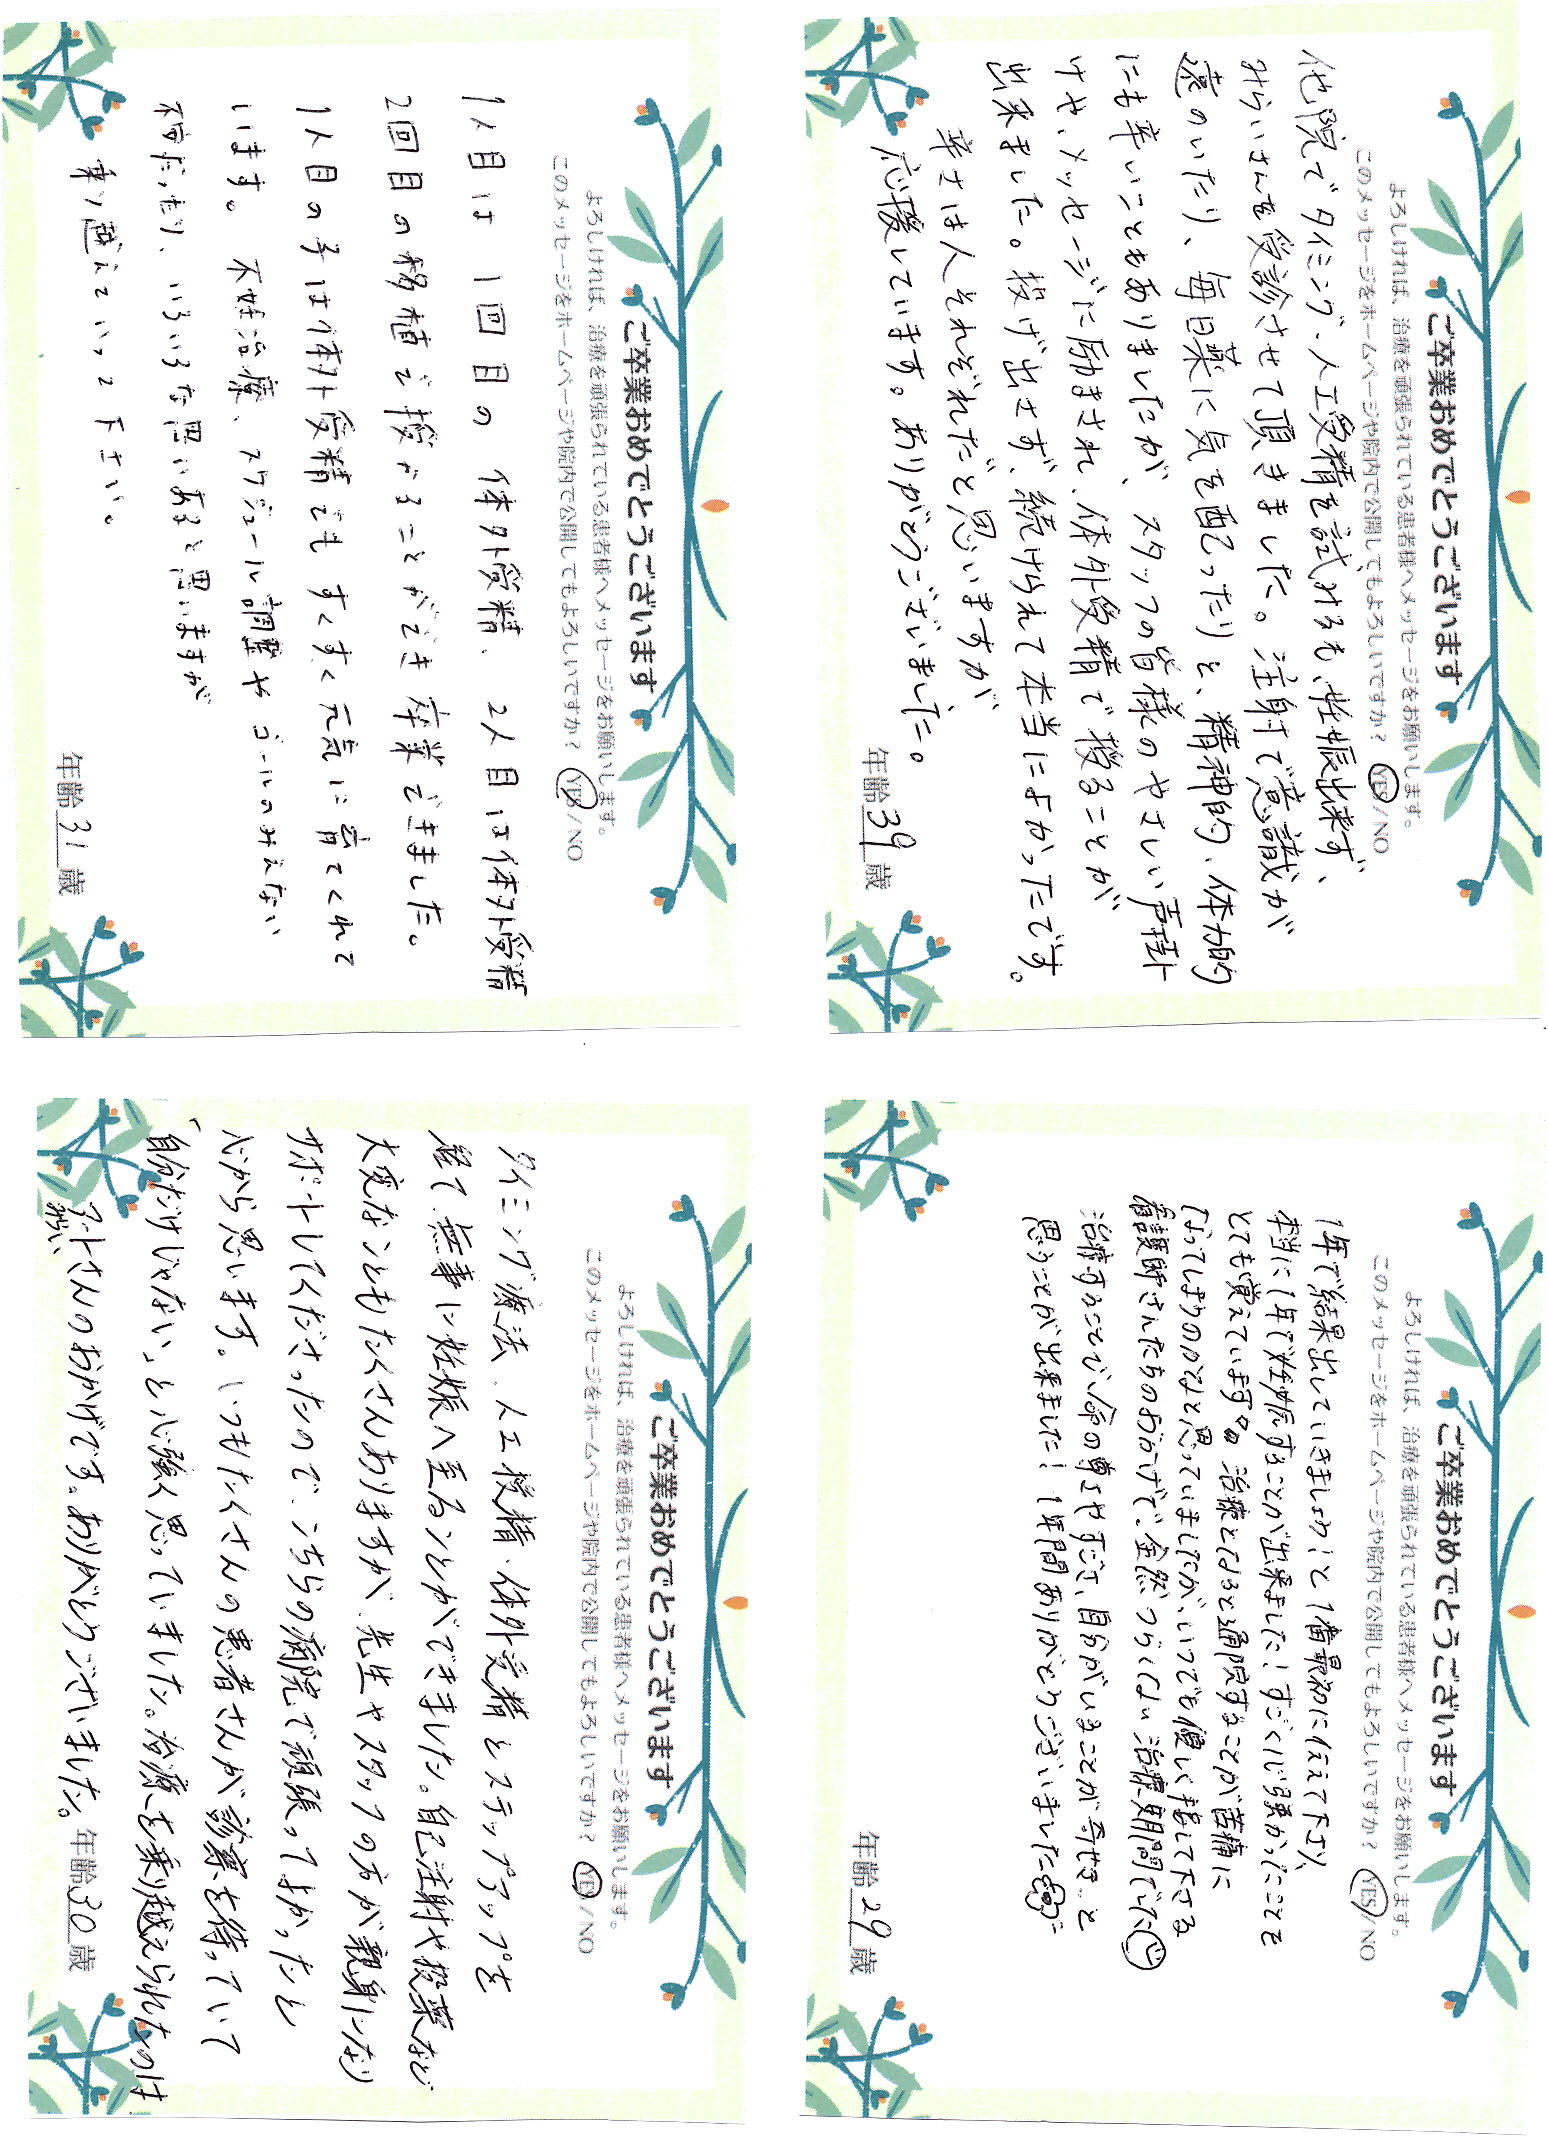 ご卒業おめでとうございます
よろしければ、治療を頑張られている患者様へメッセージをお願いします。
このメッセージをホームページや院内で公開してもよろしいですか? YES/NO
他院でタイミング、人工受精を試みるも、妊娠出来ず、
みらいさんを受診させて頂きました。注射で意識が
遠のいたり、毎日薬に気を配ったりと、精神的、体力的
にも辛いこともありましたが、スタッフの皆様のやさしい声掛
けや、メッセージに励まされ、体外受精で授ることが
出来ました。投げ出さず、続けられて本当によかったです。
辛さは人それぞれだと思いますが
応援しています。ありがとうございました。
年齢39歳
ご卒業おめでとうございます
よろしければ、治療を頑張られている患者様へメッセージをお願いします。
このメッセージをホームページや院内で公開してもよろしいですか? YES/NO
1人目は 1回目の 体外受精、2人目は体外受精
2回目の移植で授かることができ卒業できました。
1人目の子は体外受精でも すくすく元気に育ってくれて
います。 不妊治療、スケジュール調整や ゴールのみえない
不安だったり、いろいろな思いあると思いますが
乗り越えていって下さい。
年齢31歳
ご卒業おめでとうございます
よろしければ、治療を頑張られている患者様へメッセージをお願いします。
このメッセージをホームページや院内で公開してもよろしいですか? YES/NO
1年で結果出していきましょう!と1番最初に伝えて下さり、
本当に1年で妊娠することが出来ました!すごく心強かったことを
とても覚えています 治療となると通院することが苦痛に
なってしまうのかなと思っていましたが、いつでも優しく接して下さる
看護師さんたちのおかげで、全然つらくない治療期間でした
治療することで命の尊さやすごさ、自分がいることが幸せだと
思うことが出来ました! 1年間ありがとうございました
年齢29歳
ご卒業おめでとうございます
よろしければ、治療を頑張られている患者様へメッセージをお願いします。
このメッセージをホームページや院内で公開してもよろしいですか? YES/NO
タイミング療法、人工授精、体外受精とステップアップを
経て、無事に妊娠へ至ることができました。自己注射や投薬など
大変なこともたくさんありますが、先生やスタッフの方が親身になり
サポートしてくださったので、こちらの病院で頑張ってよかったと
心から思います。いつもたくさんの患者さんが診察を待っていて
「自分だけじゃない」と心強く思っていました。治療を乗り越えられたのは
アートさんのおかげです。ありがとうございました。
年齢30歳